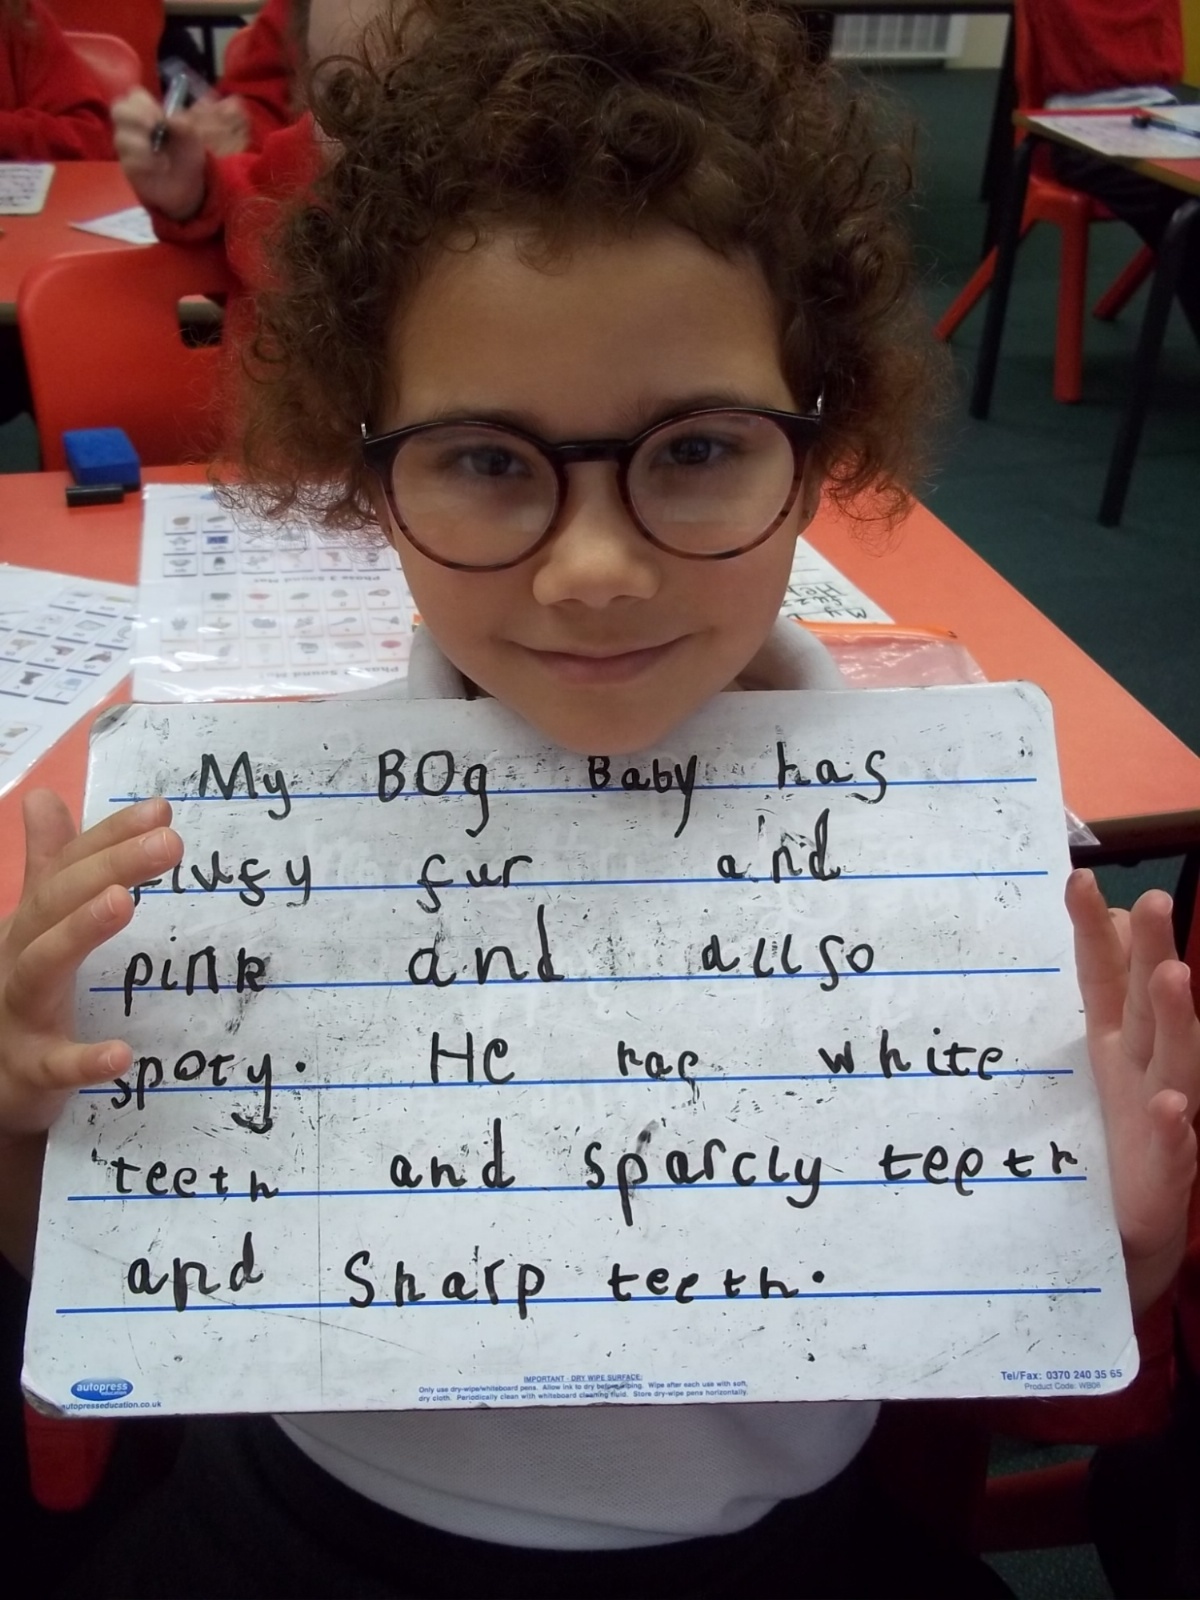 My BOg Baby has
flufy fur and
pink and allso
spoty. He hae white
teeth and sparcly teeth
and Sharp teeth.
autopress
education
autopresseducation.co.uk
IMPORTANT - DRY WIPE SURFACE:
Only use dry-wipe/whiteboard pens. Allow ink to dry before wiping. Wipe after each use with soft,
dry cloth. Periodically clean with whiteboard cleaning fluid. Store dry-wipe pens horizontally.
Tel/Fax: 0370 240 35 65
Product Code: WB06
Phase 3 Sound Mat